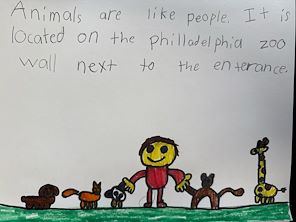 Animals are like people. It is
located on the philladelphia zoo
wall next to the enterance.